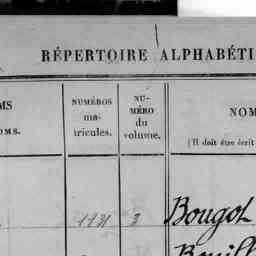 RÉPERTOIRE ALPHABÉTI
MS
OMS.
NUMÉROS
ma-
tricules.
NU-
MÉRO
du
volume.
NOM
(Il doit être écrit
1931 3 Bougot